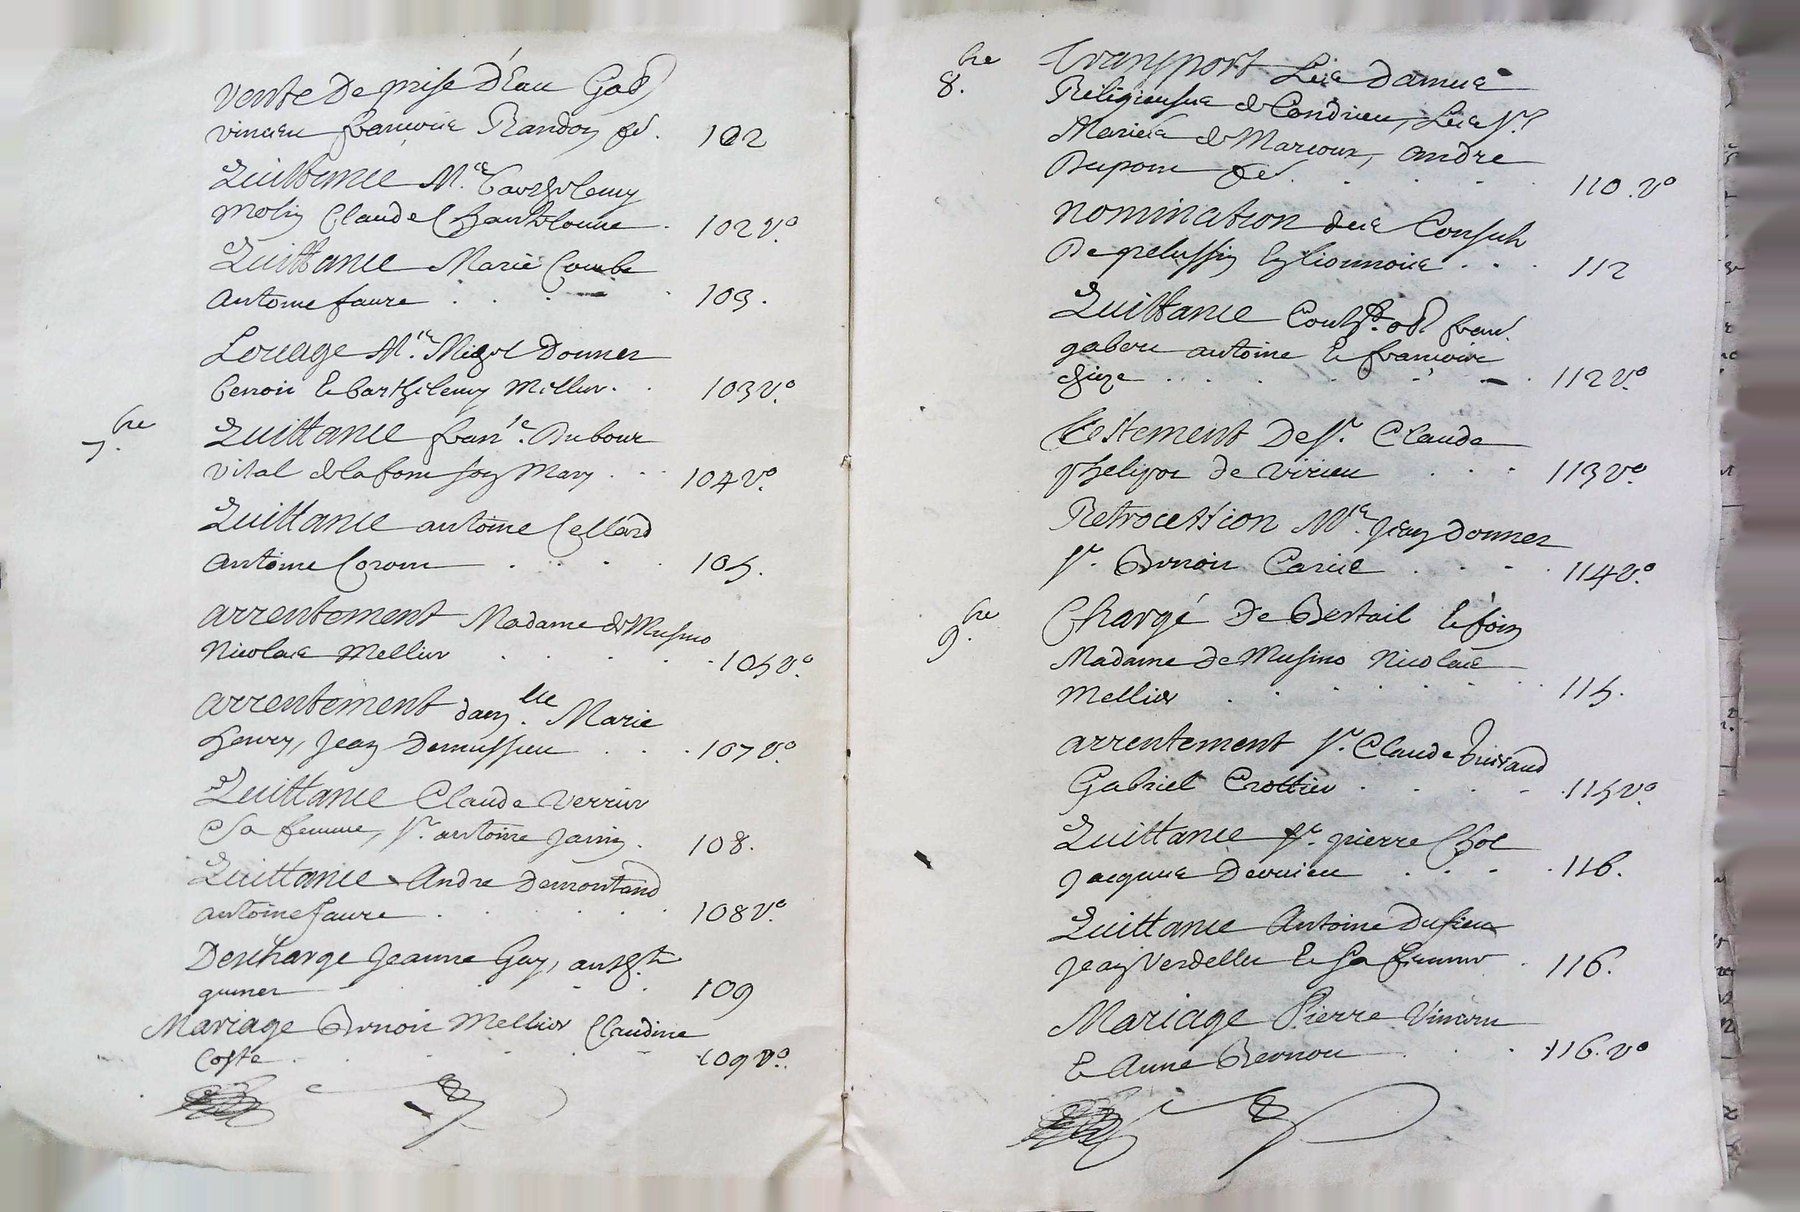 Vente De prise D'Eau Gab
Vincen francoise Randon &c. 102
Quittance Me. Barthelemy
Molin Claude Chantelouve. 102 Vo.
Quittance Marie Combe
Antoine faure 103.
Louage Mre. Michel Donner
Benoir & Barthelemy Mellier. 103 Vo.
7.bre Quittance franse. Dubour
Vital dela fon Mary 104 Vo.
Quittance antoine Cellard
Antoine Coron 105.
arrentement Madame de Musino
Nicolas Mellier 105 Vo.
arrentement dam.lle Marie
henry, Jean Demussieu 107 Vo.
Quittance Claude Verrier
& Sa femme, Sr. antoine Janin. 108.
Quittance Andre Demontand
antoine faure 108 Vo.
Descharge Jeanne Gay,
gumer 109
Mariage Benoir Mellier Claudine
Coste 109 Vo.
8.bre Transport Les Dames
Religieuses de Condrieu, Les Srs
Maries de Marcoux, andre
Dupon &c. 110. Vo
nomination des Consuls
De pelussin Lyonnois 112
Quittance fran.
gaberi antoine & francoise
112 Vo.
Testement De Sr. Claude
phelipe de Virieu 113 Vo.
Retrocession Mre. Jean Donner
Sr. Benoir Carie 114 Vo.
9.bre Chargé De Bestail & foin
Madame de Musino Nicolas
Mellier 115.
arrentement Sr. Claude Guiraud
Gabriel Crottier 115 Vo.
Quittance Sr. pierre Chol
Jacques Dervieu 116.
Quittance Antoine Dufieux
Jean Verdellet & Sa femme 116.
Mariage Pierre Vincen
& Anne Bernou 116. Vo